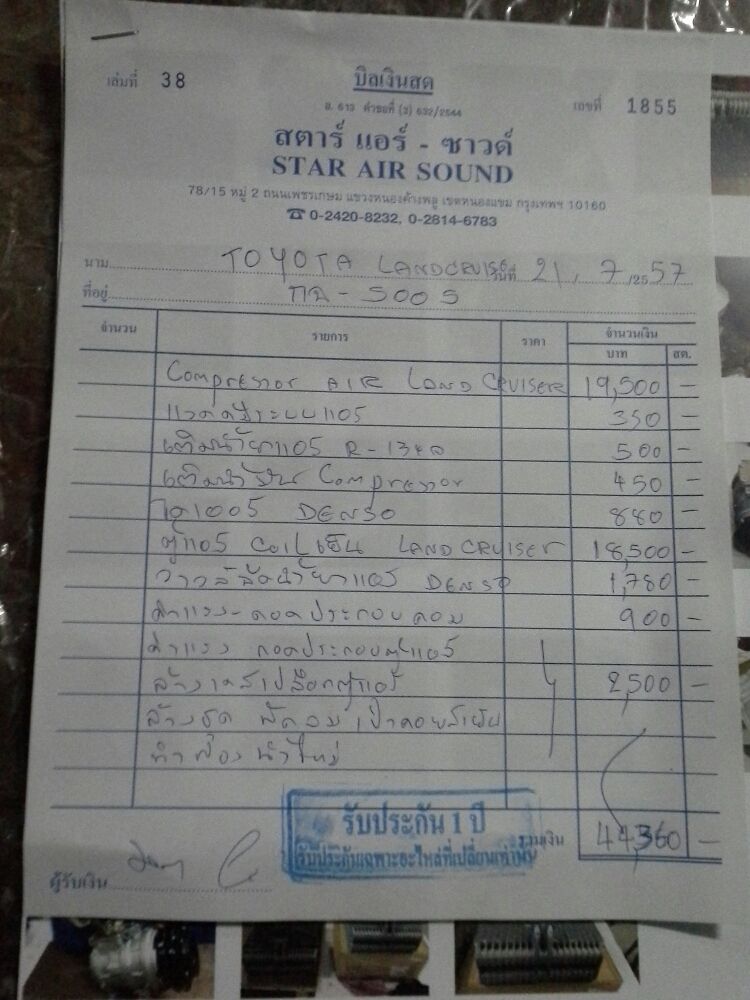 เล่มที่ 38 บิลเงินสด เลขที่ 1855
อ. 613 คำขอที่ (2) 632/2544
สตาร์ แอร์ - ซาวด์
STAR AIR SOUND
78/15 หมู่ 2 ถนนเพชรเกษม แขวงหนองค้างพลู เขตหนองแขม กรุงเทพฯ 10160
☎ 0-2420-8232, 0-2814-6783
นาม TOYOTA LANDCRUISE วันที่ 21 / 7 /25 57
ที่อยู่ 5005
จำนวน รายการ ราคา จำนวนเงิน
บาท สต.
Compressor AIR LAND CRUISER 19,500 -
แวคคั่มระบบแอร์ 350 -
เติมน้ำยาแอร์ R-134a 500 -
เติมน้ำมัน Compressor 450 -
ไดเออร์ DENSO 880 -
ตู้แอร์ Coilเย็น LAND CRUISER 18,500 -
วาวล์ฉีดน้ำยาแอร์ DENSO 1,780 -
ค่าแรง-ถอดประกอบคอม 900 -
ค่าแรง ถอดประกอบตู้แอร์
ล้างเคสเปลือกตู้แอร์ 2,500 -
ล้างชุด
น้ำใหม่
รับประกัน 1 ปี
รับประกันเฉพาะอะไหล่ที่เปลี่ยนเท่านั้น
รวมเงิน 44,360 -
ผู้รับเงิน